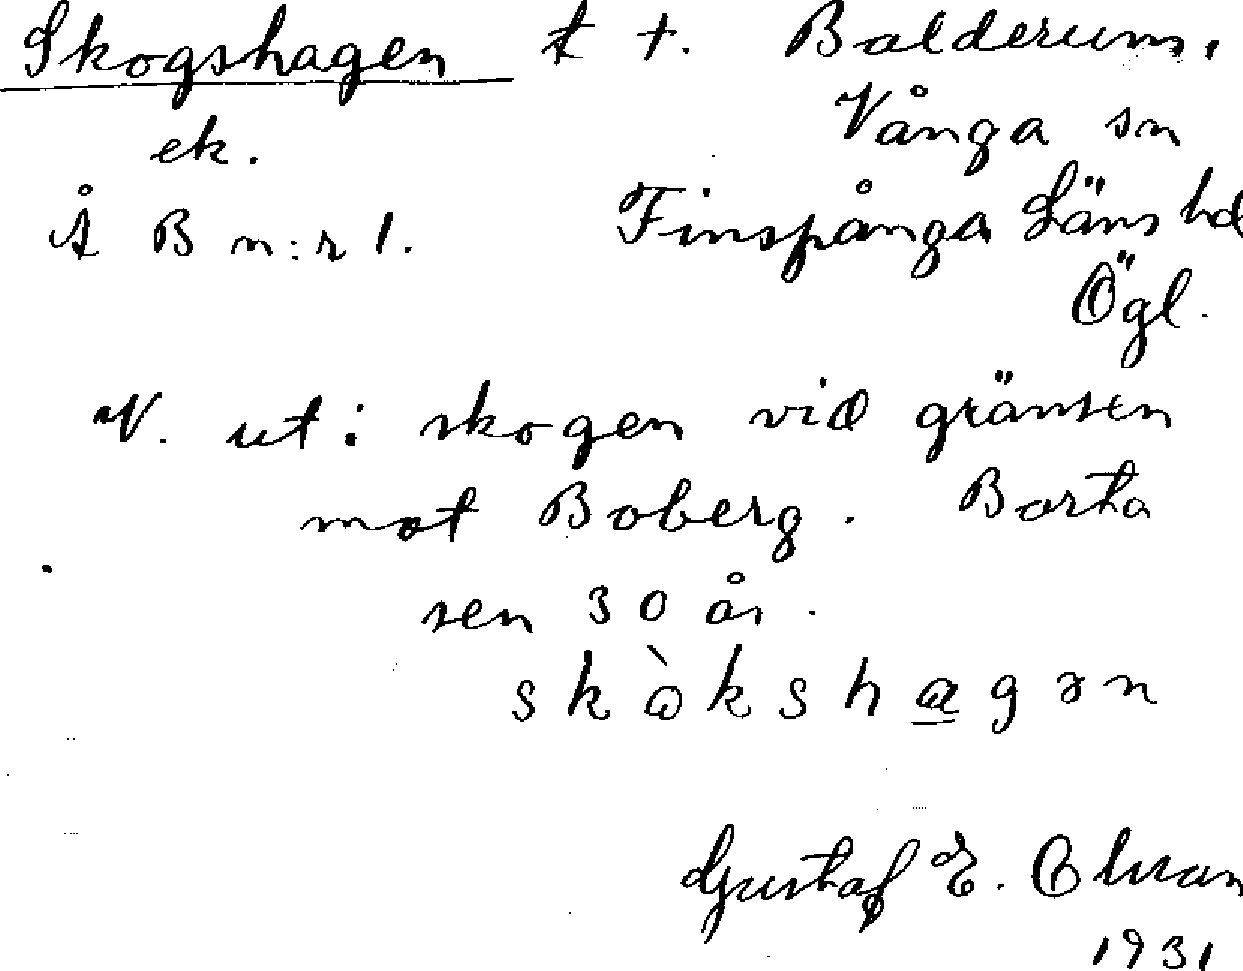 Skogshagen t +. Balderum,
ek. Vånga sn
Å B n:r 1. Finspånga Läns hd
Ögl.
V. ut i skogen vid gränsen
mot Boberg. Borta
sen 30 år.
skòkshagən
Gustaf E. Olsson
1931